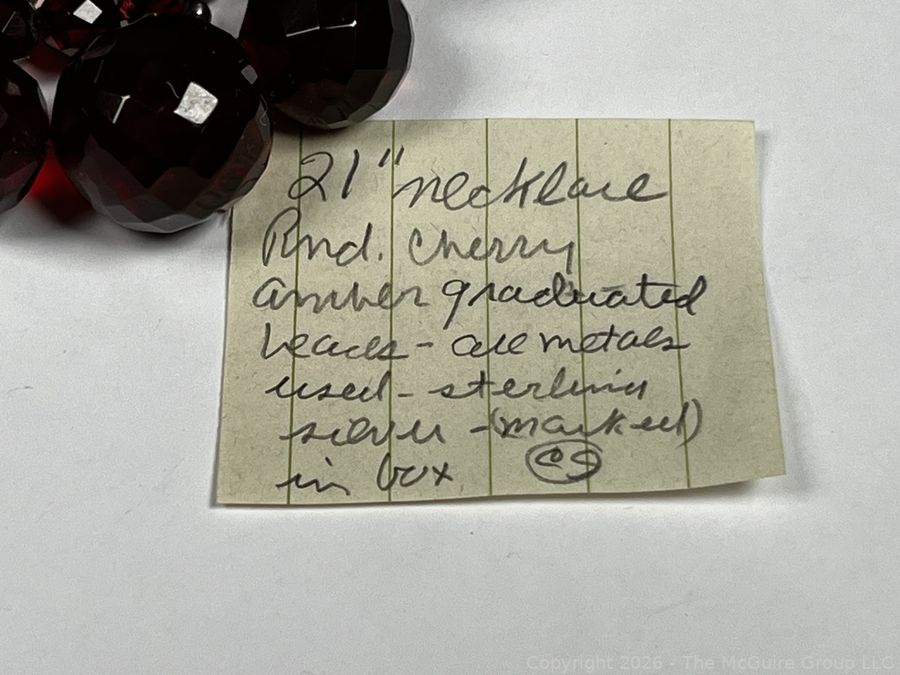 21" necklace
Rnd. cherry
amber graduated
beads - all metals
used - sterling
silver - (marked)
in box CS
Copyright 2026 - The McGuire Group LLC